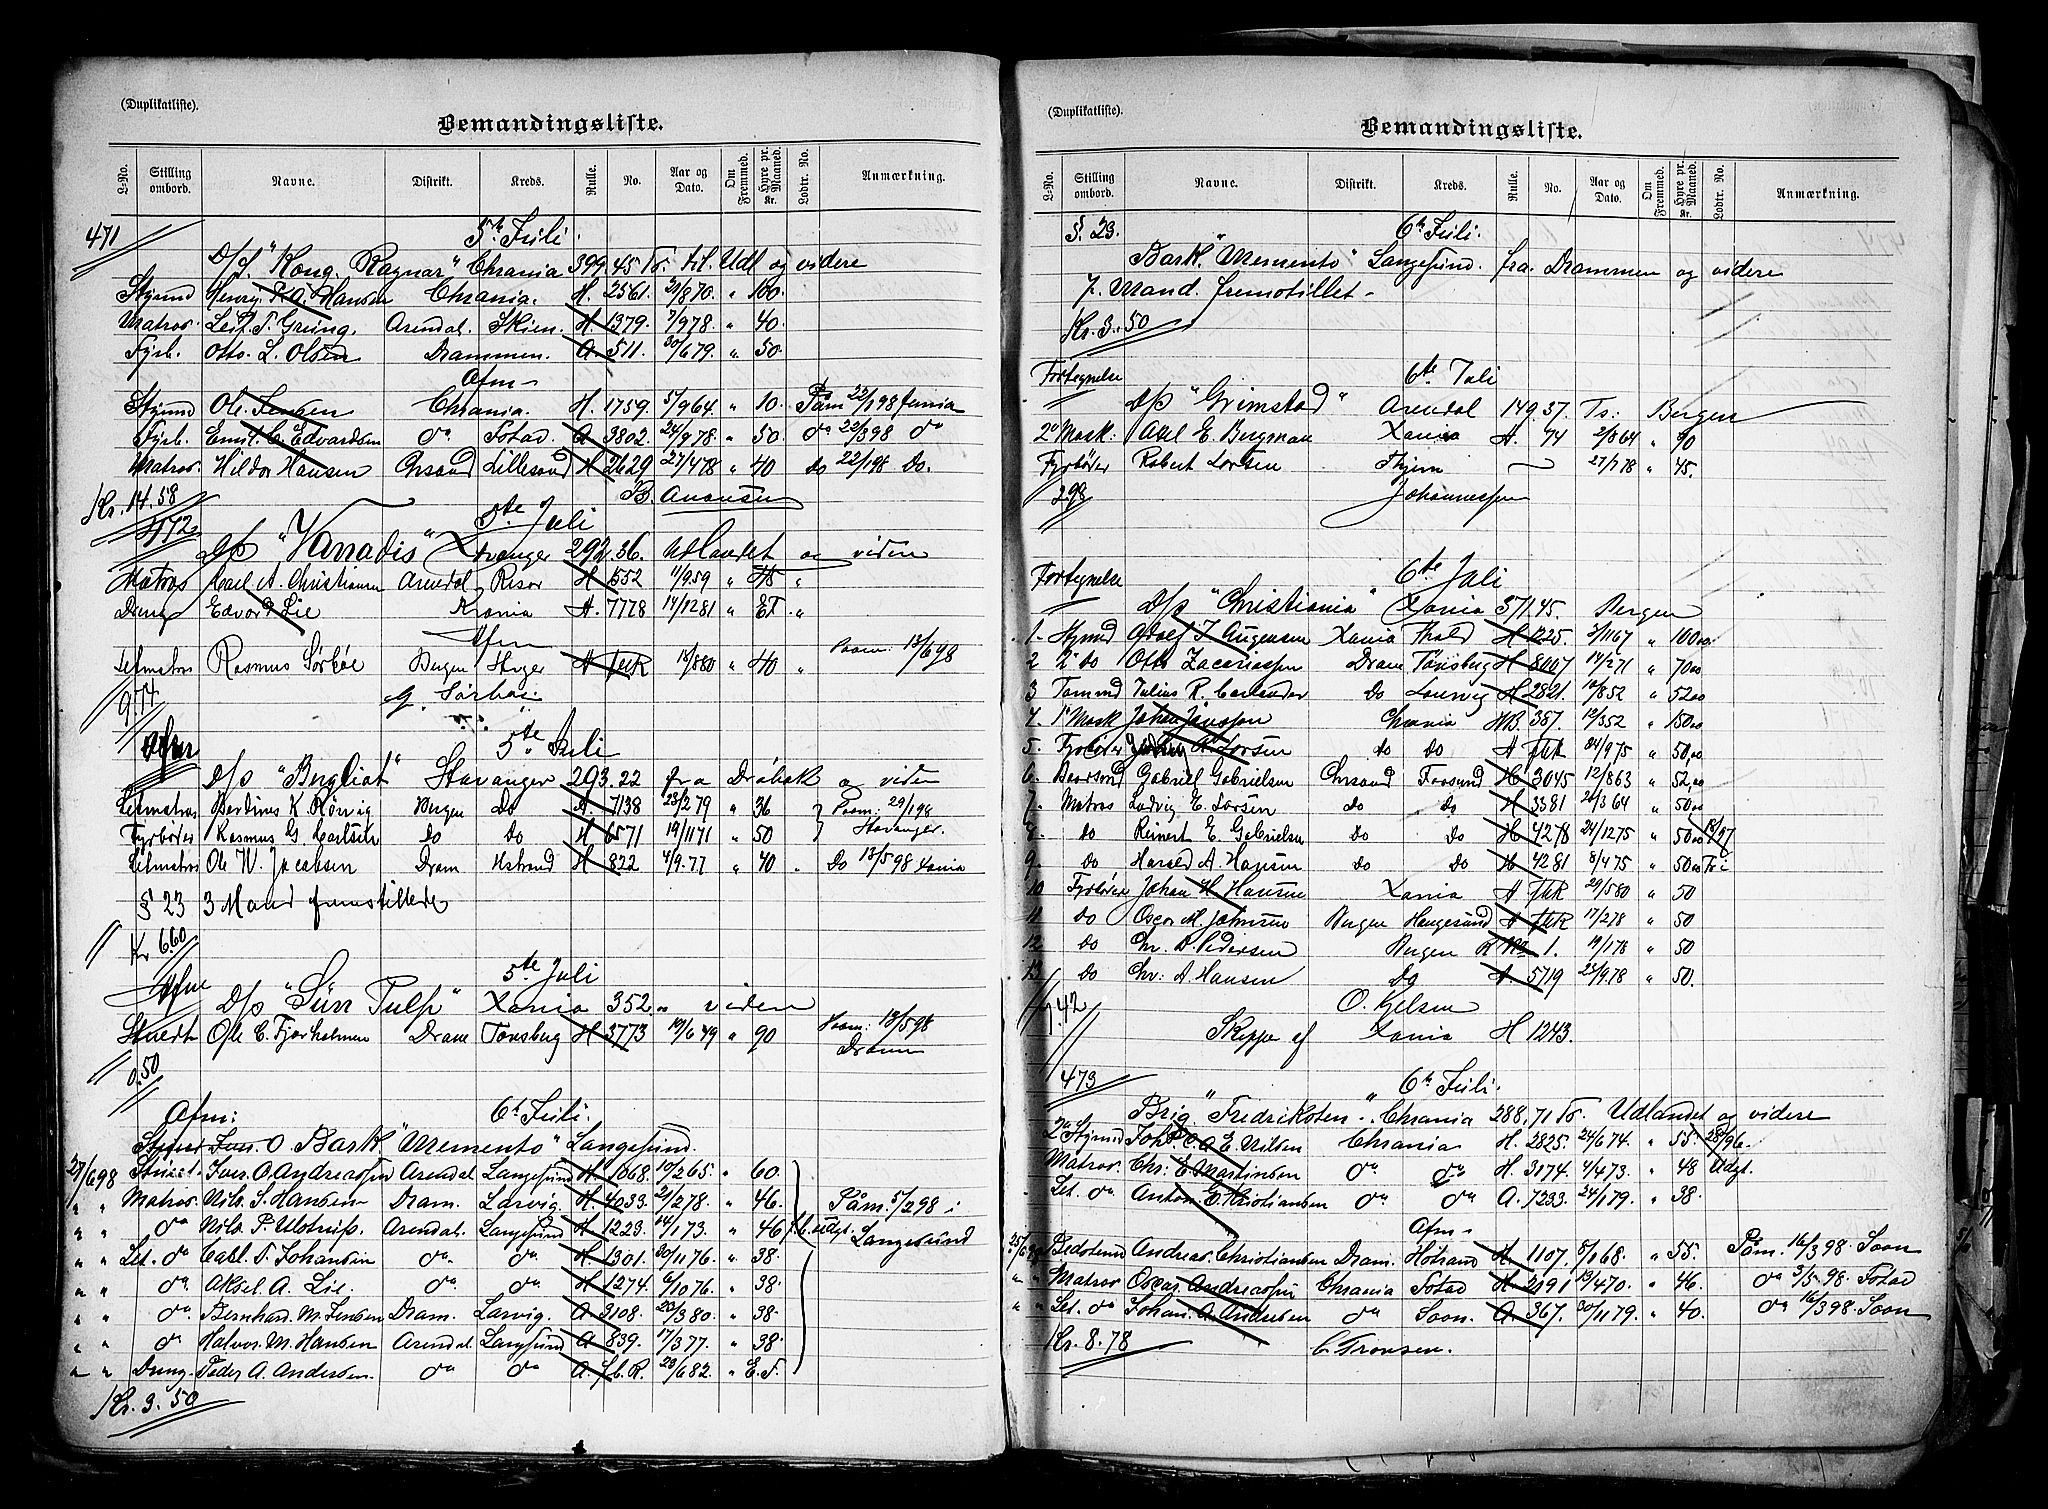 (Duplikatliste).
Bemandingsliste.
L-No. Stilling ombord. Navne. Distrikt. Kreds. Rulle. No. Aar og Dato. Om Fremmed. Hyre pr. Maaned. Kr. Lodtr. No. Anmærkning.
471 5te Juli.
D/S. "Kong Ragnar" Chrania 399.45 To. til Udl og videre
Stymd Henry. Hansen Chrania. H. 2561. 21/8 70. " 100.
Matros. Leif. T. Grung. Arendal. Skien. H. 1379. 7/9 78. " 40.
Fyrb. Otto. L. Olsen Drammen. A. 511. 30/6 79. " 50.
Afm-
Stymd Ole. Jensen Chrania. H. 1759. 5/9 64. " 10. Påm 22/1 98
Fyrb. Emil. C. Edvardsen do. Fstad. A 3802. 24/9 78. " 50. do 22/3 98 do
Matros. Hildor Hansen Chrsand Lillesand H 2629 27/4 78 " 40 Do 22/1 98 Do.
Kr. 14.58 B. Anonsen
472 5te Juli
D/S "Vanadis" Stvanger 292.36. Udlandet og viden
Matros Carl A. Christiansen Arendal Risør H 552 11/9 59 " 45 "
Dreng Edvard Lie Xrania A. 7778 14/12 81 " E.F. "
Afm
Letmatros Rasmus Sørbøe Bergen Stvger A FbR 13/8 80 " 40 " Paam: 13/6 98
G. Sørbøe.
Afm 5te Juli
D/S "Bergliot" Stavanger 293.22 fra Drøbak og viden
Letmatros Berdines K Rørvig Bergen Do A. 7138 23/2 79 " 36 Paam: 29/1 98
Fyrbøder Rasmus G. Carlsen Do Do H 6571 19/11 71 " 50 Stavanger.
Letmatros Ole W. Jacobsen Dram Hstrand H. 822 4/9.77 " 40 " Do 13/5 98 Xania
§ 23 3 Mand fremstillede
Kr 6.60
Afm 5te Juli
D/S "Sün Tulp" Xania 352 " viden
Stuedt Ole C. Fjorholmen Dram Tønsberg H. 3773 19/6 49 " 90 Paam: 13/5 98
Drammen
0.50
Afm: 6te Juli.
O Bark. "Memento" Langesund.
27/6 98 Stuedt. Iver. O. Andreassen Arendal Langesund H. 1068. 10/2 65. " 60.
" " Matros. Nils. S. Hansen Dram. Larvig. H. 4033. 21/2 78. " 46. Påm. 5/2 98 i
" " do Nils. P. Ulstrup. Arendal. Langesund H. 1223. 14/1 73. " 46. Langesund
" " Let. do Carl. T. Johansen do do H. 1301. 30/11 76. " 38.
" " do. Aksel. A. Lie. do. do H. 1274. 6/10 76. " 38.
" " do. Bernhard. M. Jensen Dram. Larvig. A. 3108. 20/3 80. " 38.
" " do Halvor. M. Hansen Arendal. Langesund A. 839. 17/3 77. " 38.
" " Dreng. Peder A. Andersen. do do A. f.b.R. 23/6 82. " E.F.
Kr. 3.50
(Duplikatliste).
Bemandingsliste.
L-No. Stilling ombord. Navne. Distrikt. Kreds. Rulle. No. Aar og Dato. Om Fremmed. Hyre pr. Maaned. Kr. Lodtr. No. Anmærkning.
§. 23. 6te Juli.
Bark. "Memento" Langesund. fra. Drammen og videre
7. Mand. fremstillet-
Kr. 3.50
Fortegnelse 6te Juli
D/S "Grimstad" Arendal 149.37. Ts: Bergen
2' Mask: Axel E. Bergman Xania A. 74 2/8 64 " 90
Fyrbøder Robert Larsen Thjem 27/7 78 " 45.
2.98 Johannessen
Fortegnelse 6te Juli
D/S "Christiania" Xania 371.45. Bergen
1. Stymd Adolf J. Augensen Xania Fhald H 1225. 3/11 67 " 100.00
2 2' do Otto Zacariassen Dram Tønsberg H. 8007 14/2 71 " 70.00
3 Tømmd Julius R. Do Laurvig H 2821. 10/8 52 " 52.00
4. 1' Mask Johan Jönsson Chrania MB. 387. 12/3 52 " 150.00
5. Fyrbøder Johan A. Larsen do do A FbR 04/9 75 " 50.00
6. Baadsmd Gabriel Gabrielsen Chrsand Farsund H 3045 12/8 63 " 52.00
7. Matros Ludvig E. Larsen do do H 3381 26/3 64 " 50.00
8. do Reinert E. Gabrielsen Do do H 4278 24/12 75 " 50.00 19/97
9. do Harald A. Hansen do Do H 4281 8/4 75 " 50.00 Fri
10 Fyrbøder Johan H. Hansen Xania A FbR 29/5 80 " 50
11 do Oscar M. Johnsen Bergen Haugesund A FbR 17/2 78 " 50
12 do Chr. A. Pedersen Bergen R 1. 19/1 78 " 50
13 Do Chr: A. Hansen Do A. 5719 23/9.78 " 50.
O. Kjelsen
Skipper af Xania H 1243.
473 6te Juli.
Brig "Fredriksten". Chrania 288.71 To. Udlandet og videre
2de Stymd Joh. C. A. E. Nilsen Chrania H. 2825. 24/6 74. " 55. 28/96.
Matros. Chr: E. Martinsen do do H. 3174. 4/4 73. " 48 Udgt.
Let. do Anton. E. Kristiansen do do A. 7233. 24/1 79. " 38.
Afm-
25/6 98 Bedstemd Andreas. Christiansen Dram. Hstrand H. 1107. 8/1 68. " 55. Påm. 16/3 98. Soon
" " Matros Oscar. Andreassen Chrania Fstad H. 2191 19/4 70. " 46. do 3/5 98. Fstad
" " Let. do Johan. A. Andersen do Soon. A. 367. 30/11 79. " 40. do 16/3 98. Soon
Kr. 8.78 C. Tronsen.